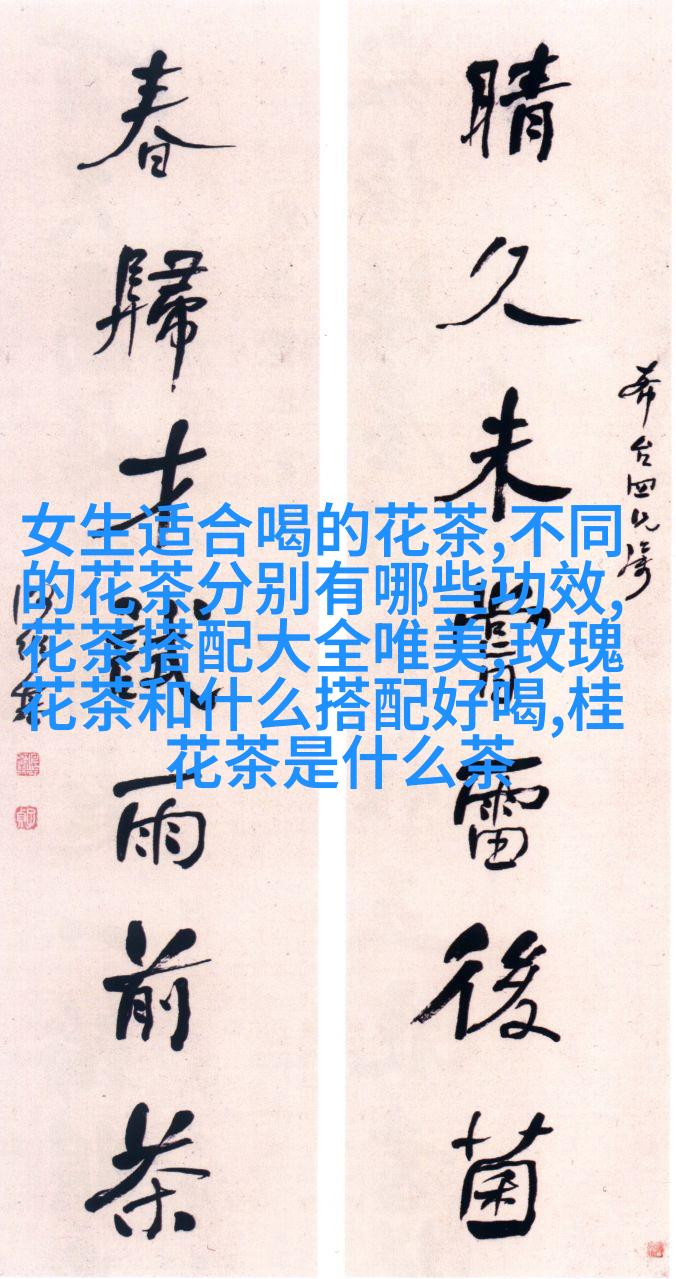 晴久未嘗雷後菌
春歸才試雨前茶
女生适合喝的花茶,不同
的花茶分别有哪些功效,
花茶搭配大全唯美,玫瑰
花茶和什么搭配好喝,桂
花茶是什么茶